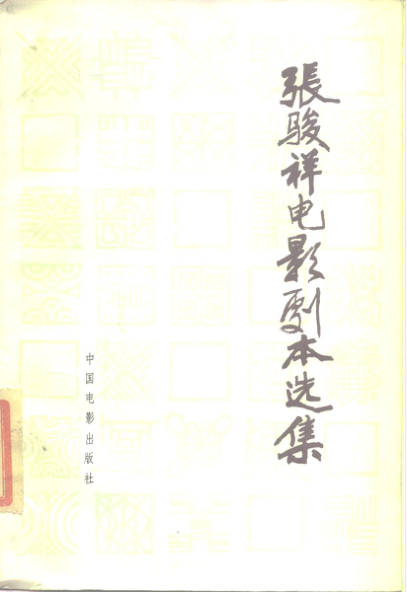 張骏祥电影剧本选集
中国电影出版社